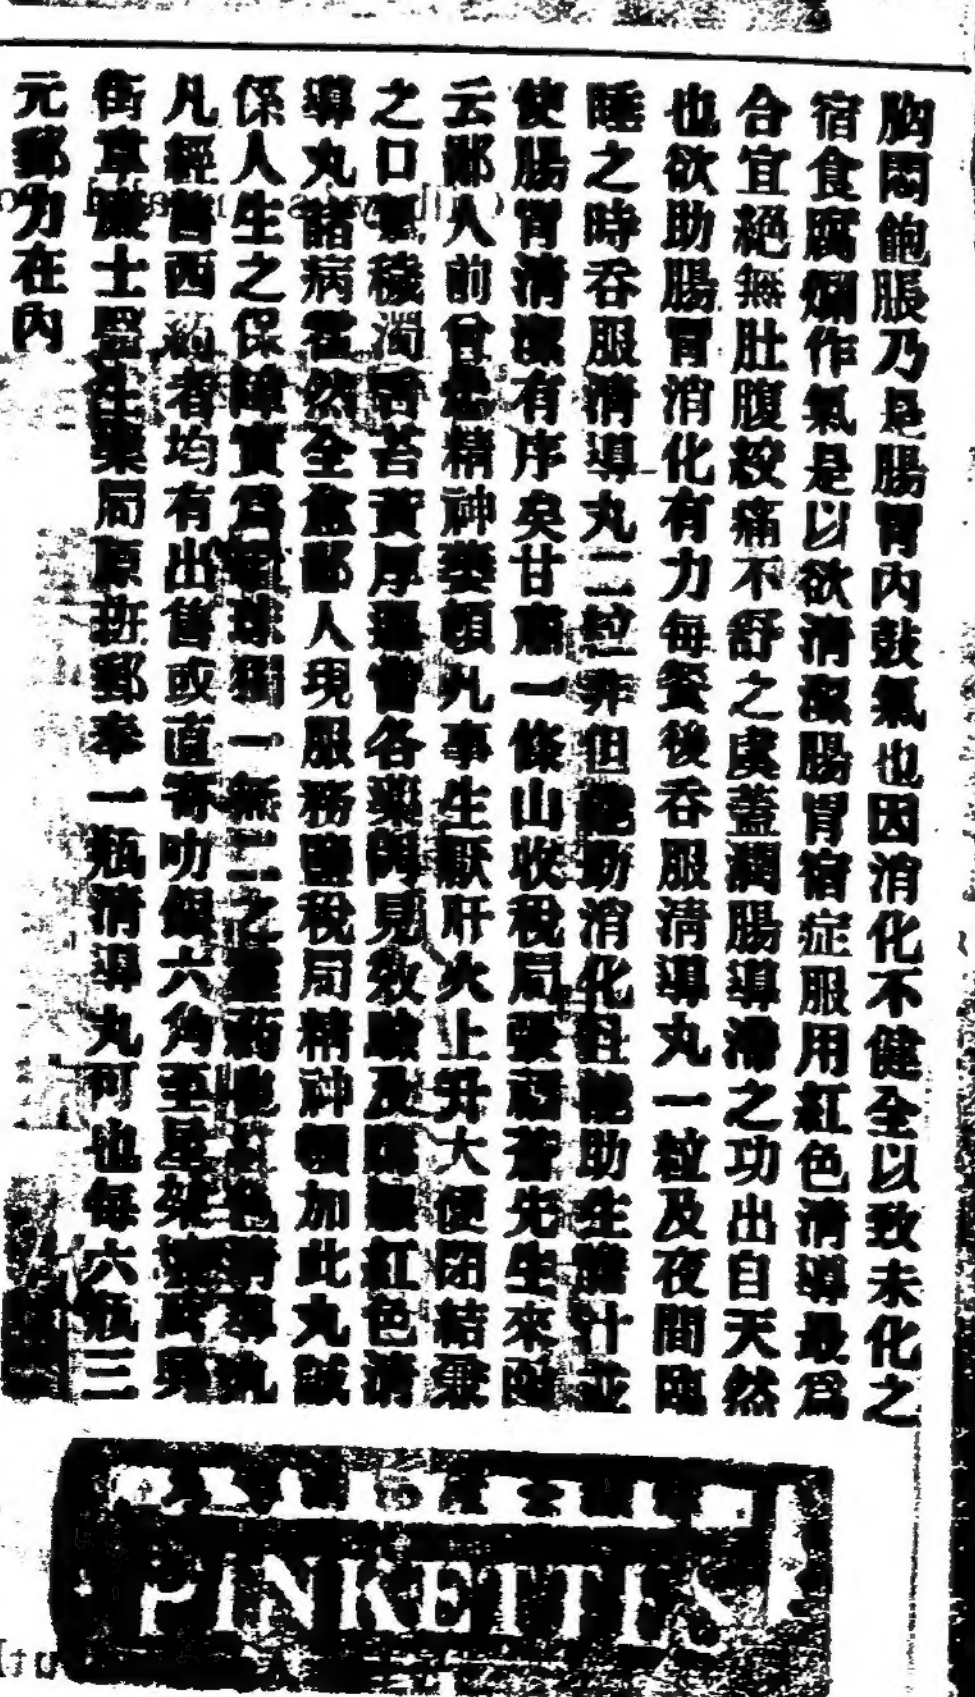 胸悶飽脹乃是腸胃內鼓氣也因消化不健全以致未化之
宿食腐爛作氣是以欲清潔腸胃宿症服用紅色清導最爲
合宜絕無肚腹絞痛不舒之虞蓋潤腸導滯之功出自天然
也欲助腸胃消化有力每餐後吞服清導丸一粒及夜間臨
睡之時吞服清導丸二粒非但能助消化且能助生膽汁並
使腸胃清潔有序矣甘肅一條山收稅局張先生來函
云鄙人前曾患精神萎頓凡事生厭肝火上升大便閉結兼
之口氣穢濁舌苔黃厚各藥罔見效驗及紅色清
導丸諸病霍然全愈鄙人現服務鹽稅局精神頓加此丸誠
係人生之保障實爲一無二之藥紅色清導丸
凡經售西藥者均有出售或直寄叻六角
士醫生藥局原班郵奉一瓶清導丸可也每六瓶三
元郵力在內
PINKETTES